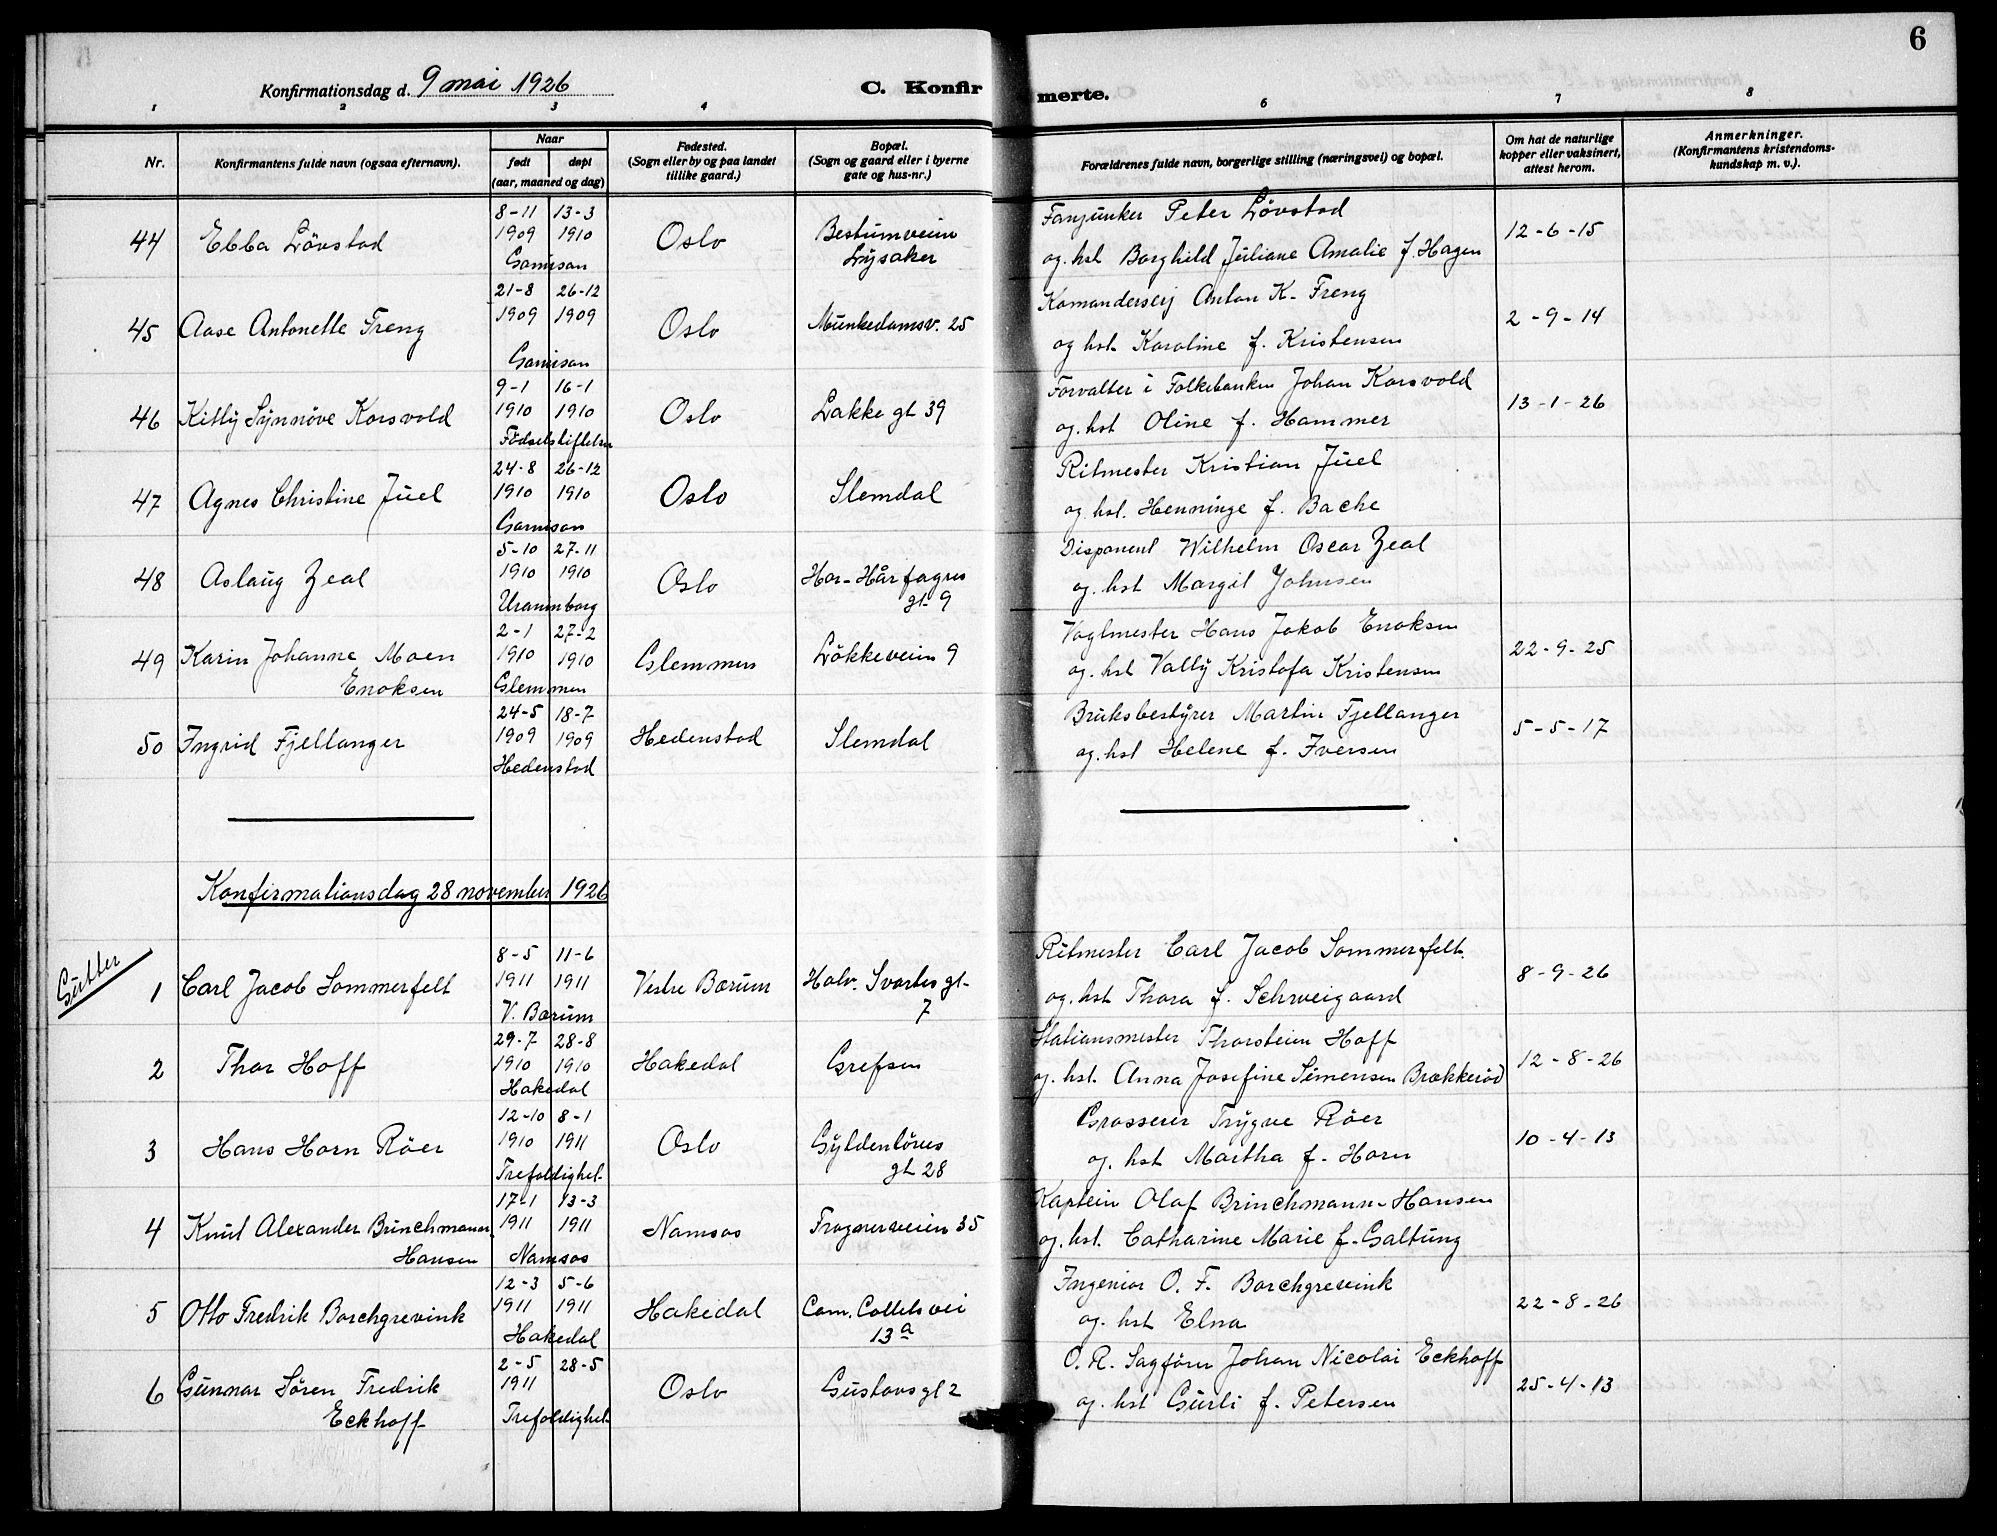 6
Konfirmationsdag d. 9 mai 1926
C. Konfirmerte.
1 2 3 4 6 7 8
Nr.
Konfirmantens fulde navn (ogsaa efternavn).
Naar
født døpt
(aar, maaned og dag)
Fødested.
(Sogn eller by og paa landet
tillike gaard.)
Bopæl.
(Sogn og gaard eller i byerne
gate og hus-nr.)
Forældrenes fulde navn, borgerlige stilling (næringsvei) og bopæl.
Om hat de naturlige
kopper eller vaksinert,
attest herom.
Anmerkninger.
(Konfirmantens kristendoms-
kundskap m. v.).
8-11 13-3 Fanjunker Peter Lövstad
44 Ebba Lövstad 1909 1910 Oslo Bestumveien 12-6-15
Garnison Lysaker og. hst Borghild Juliane Amalie f. Hagen
21-8 26-12 Komanderserj Anton K. Freng
45 Aase Antonette Freng 1909 1909 Oslo Munkedamsv. 25 2-9-14
Garnison og hst. Karoline f. Kristensen
9-1 16-1 Forvalter i Folkebanken Johan Korsvold
46 Kitty Synnöve Korsvold 1910 1910 Oslo Lakke gt 39 13-1-26
Födselstiftelsen og. hst Oline f. Hammer
24-8 26-12 Ritmester Kristian Juel
47 Agnes Christine Juel 1910 1910 Oslo Slemdal
Garnison og. hst. Henninge f. Bache
5-10 27-11 Disponent Wilhelm Oscar Zeal
48 Aslaug Zeal 1910 1910 Oslo Har. Hårfagres
Uranienborg gt. 9 og. hst Margit Johnsen
2-1 27-2 Vogtmester Hans Jakob Enoksen
49 Karin Johanne Moen 1910 1910 Glemmen Lökkeveien 9 22-9-25
Enoksen Glemmen og. hst Vally Kristofa Kristensen
24-5 18-7 Bruksbestyrer Martin Fjellanger
50 Ingrid Fjellanger 1909 1909 Hedenstad Slemdal 5-5-17
Hedenstad og. hst Helene f. Iversen
Konfirmationsdag 28 november 1926
Gutter
8-5 11-6 Ritmester Carl Jacob Sommerfelt
1 Carl Jacob Sommerfelt 1911 1911 Vestre Bærum Halv. Svartes gt. 8-9-26
V. Bærum 7 og. hst Thora f. Schweigaard
29-7 28-8 Stationsmester Thorstein Hoff
2 Thor Hoff 1910 1910 Hakedal Grefsen 12-8-26
Hakedal og. hst. Anna Josefine Simensen Brækkeröd
12-10 8-1 Grosserer Trygve Röer
3 Hans Horn Röer 1910 1911 Oslo Gyldenlöves 10-4-13
Trefoldighet. gt 28 og. hst Martha f. Horn
17-1 13-3 Kaptein Olaf Brinchmann-Hansen
4 Knut Alexander Brinchmann 1911 1911 Namsos Frognerveien 35
Hansen Namsos og. hst. Catharine Marie f. Galtung
12-3 5-6 Ingeniör O. F. Borchgrevink
5 Otto Fredrik Borchgrevink 1911 1911 Hakedal Cam. Colletts vei 22-8-26
Hakedal 13a og. hst Elna
2-5 28-5 O. R. Sagförer Johan Nicolai Eckhoff
6 Gunnar Sören Fredrik 1911 Oslo Gustavs gt 2 25-4-13
Eckhoff Trefoldighet. og. hst Gurli f. Petersen